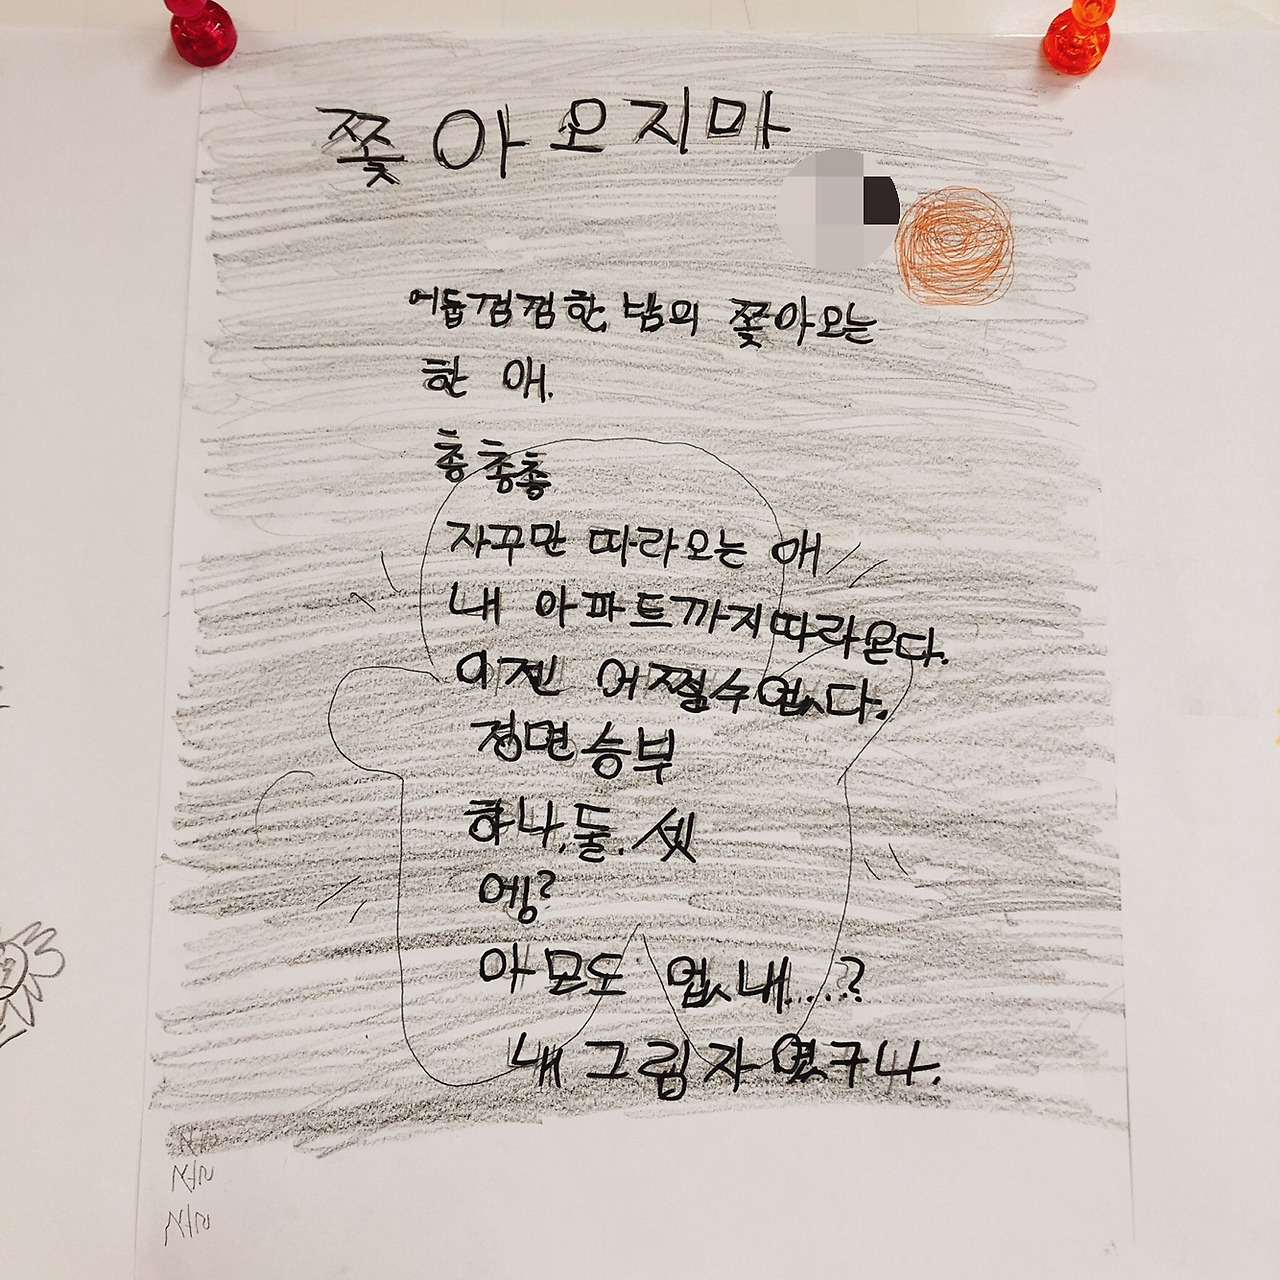 쫓아오지마
어둡껌껌한 밤의 쫓아오는
한 애.
총총총
자꾸만 따라오는 애
내 아파트까지따라온다.
이젠 어쩔수업다.
정면승부
하나,둘.셋
엥?
아몬도 업내....?
내그림자였구나.